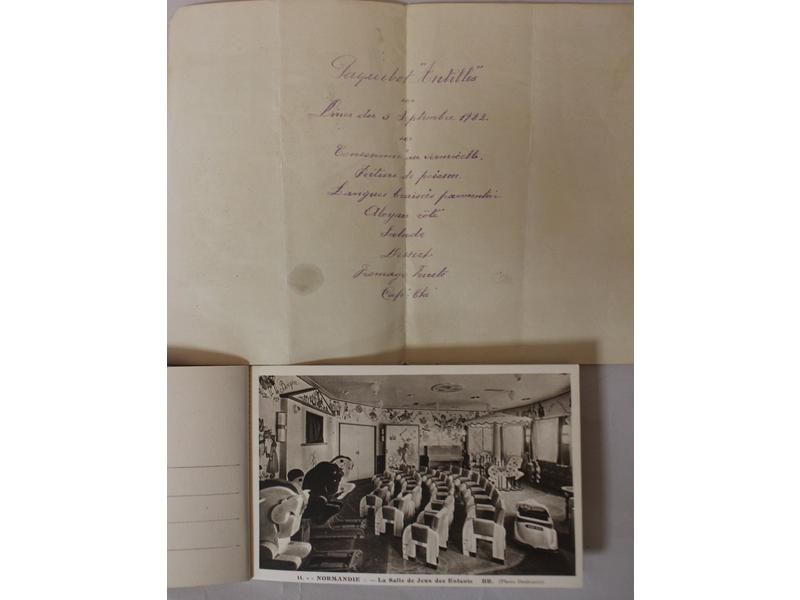 Paquebot "Antilles"
Diner du 5 Septembre 1922.
Consommé au vermicelle.
Friture de poisson.
Langues braisées parmentier
Aloyau rôti
Salade
Dessert
Fromage Fruits
Café. Thé
11. - NORMANDIE. - La Salle de Jeux des Enfants BR.